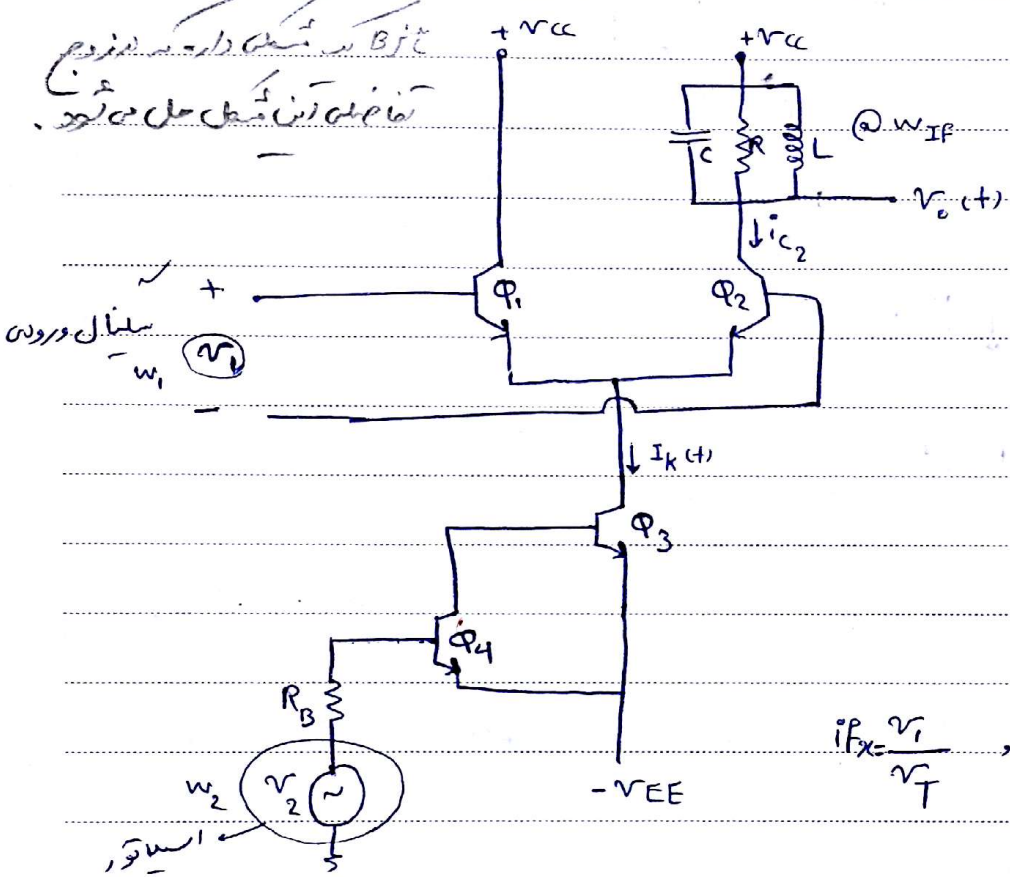 BJT یک مشکل دارد که زوج
تفاضلی این مشکل حل می‌شود.
+VCC
+VCC
C R L @ w_IF
V_o(t)
↓i_C2
+ Q1 Q2
سیگنال ورودی
w_1 v_1
−
↓ I_k(t)
Q3
Q4
R_B
if x = v_1/v_T ,
w_2 v_2 ~ -VEE